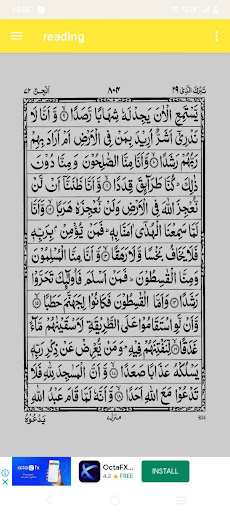 reading
تَبٰرَكَ الَّذِيْ ٢٩
٨٠٤
اَلْجِنّ ٧٢
يَّسْتَمِعِ الْاٰنَ يَجِدْ لَهٗ شِهَابًا رَّصَدًا ۙ وَّ اَنَّا لَا
نَدْرِيْۤ اَشَرٌّ اُرِيْدَ بِمَنْ فِي الْاَرْضِ اَمْ اَرَادَ بِهِمْ
رَبُّهُمْ رَشَدًا ۙ وَّ اَنَّا مِنَّا الصّٰلِحُوْنَ وَ مِنَّا دُوْنَ
ذٰلِكَ ؕ كُنَّا طَرَآىِٕقَ قِدَدًا ۙ وَّ اَنَّا ظَنَنَّاۤ اَنْ لَّنْ
نُّعْجِزَ اللّٰهَ فِي الْاَرْضِ وَ لَنْ نُّعْجِزَهٗ هَرَبًا ۙ وَّ اَنَّا
لَمَّا سَمِعْنَا الْهُدٰۤى اٰمَنَّا بِهٖ ؕ فَمَنْ يُّؤْمِنْۢ بِرَبِّهٖ
فَلَا يَخَافُ بَخْسًا وَّ لَا رَهَقًا ۙ وَّ اَنَّا مِنَّا الْمُسْلِمُوْنَ
وَ مِنَّا الْقٰسِطُوْنَ ؕ فَمَنْ اَسْلَمَ فَاُولٰٓىِٕكَ تَحَرَّوْا
رَشَدًا وَ اَمَّا الْقٰسِطُوْنَ فَكَانُوْا لِجَهَنَّمَ حَطَبًا ۙ
وَّ اَنْ لَّوِ اسْتَقَامُوْا عَلَى الطَّرِيْقَةِ لَاَسْقَيْنٰهُمْ مَّآءً
غَدَقًا ۙ لِّنَفْتِنَهُمْ فِيْهِ ؕ وَ مَنْ يُّعْرِضْ عَنْ ذِكْرِ رَبِّهٖ
يَسْلُكْهُ عَذَابًا صَعَدًا ۙ وَّ اَنَّ الْمَسٰجِدَ لِلّٰهِ فَلَا
تَدْعُوْا مَعَ اللّٰهِ اَحَدًا ۙ وَّ اَنَّهٗ لَمَّا قَامَ عَبْدُ اللّٰهِ
804
يَدْعُوْهُ
octa fx
OctaFX...
4.2 ★ FREE
INSTALL